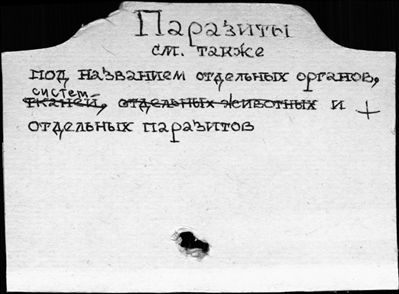 Паразиты
см. также
под названием отдельных органов,
систем
тканей, отдельных животных и +
отдельных паразитов